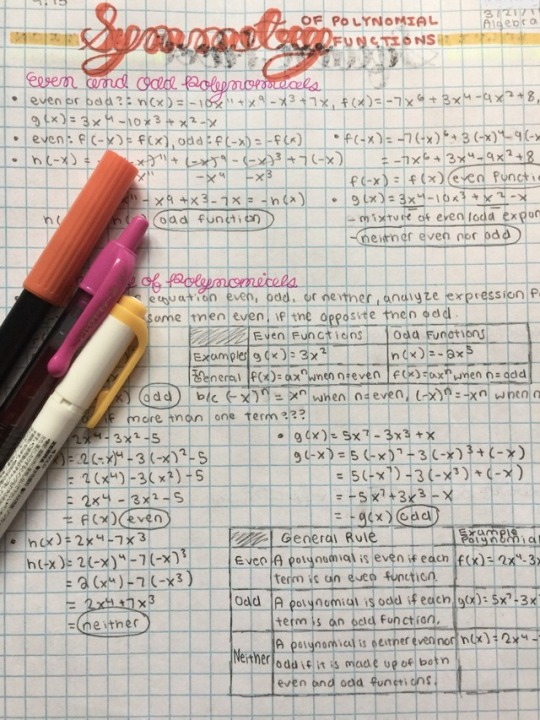 Symmetry OF POLYNOMIAL FUNCTIONS
Algebra
Even and Odd Polynomials
• even or odd?: h(x) = -10x¹¹ + x⁹ - x³ + 7x, f(x) = -7x⁶ + 3x⁴ - 9x² + 8,
g(x) = 3x⁴ - 10x³ + x² - x
• even: f(-x) = f(x), odd: f(-x) = -f(x)
• h(-x) =
+ (-x)⁹ - (-x)³ + 7(-x)
-x⁹ -x³
- x⁹ + x³ - 7x = -h(x)
odd function
• f(-x) = -7(-x)⁶ + 3(-x)⁴ - 9(-x
= -7x⁶ + 3x⁴ - 9x² + 8
f(-x) = f(x) even
• g(x) = 3x⁴ - 10x³ + x² - x
- mixture of even/odd
- neither even nor odd
of Polynomials
equation even, odd, or neither, analyze expression
same then even, if the opposite then odd.
Even Functions Odd Functions
Examples g(x) = 3x² h(x) = -2x⁵
In General f(x) = axⁿ when n = even f(x) = axⁿ when n = odd
odd b/c (-x)ⁿ = xⁿ when n = even, (-x)ⁿ = -xⁿ when n
if more than one term???
2x⁴ - 3x² - 5
= 2(-x)⁴ - 3(-x)² - 5
= 2(x⁴) - 3(x²) - 5
= 2x⁴ - 3x² - 5
= f(x) even
• g(x) = 5x⁷ - 3x³ + x
g(-x) = 5(-x)⁷ - 3(-x)³ + (-x)
= 5(-x⁷) - 3(-x³) + (-x)
= -5x⁷ + 3x³ - x
= -g(x) odd
• h(x) = 2x⁴ - 7x³
h(-x) = 2(-x)⁴ - 7(-x)³
= 2(x⁴) - 7(-x³)
= 2x⁴ + 7x³
= neither
General Rule Example Polynomial
Even A polynomial is even if each term is an even function. f(x) = 2x⁴ - 3x
Odd A polynomial is odd if each term is an odd function. g(x) = 5x⁷ - 3x
Neither A polynomial is neither even nor odd if it is made up of both even and odd functions. h(x) = 2x⁴ -